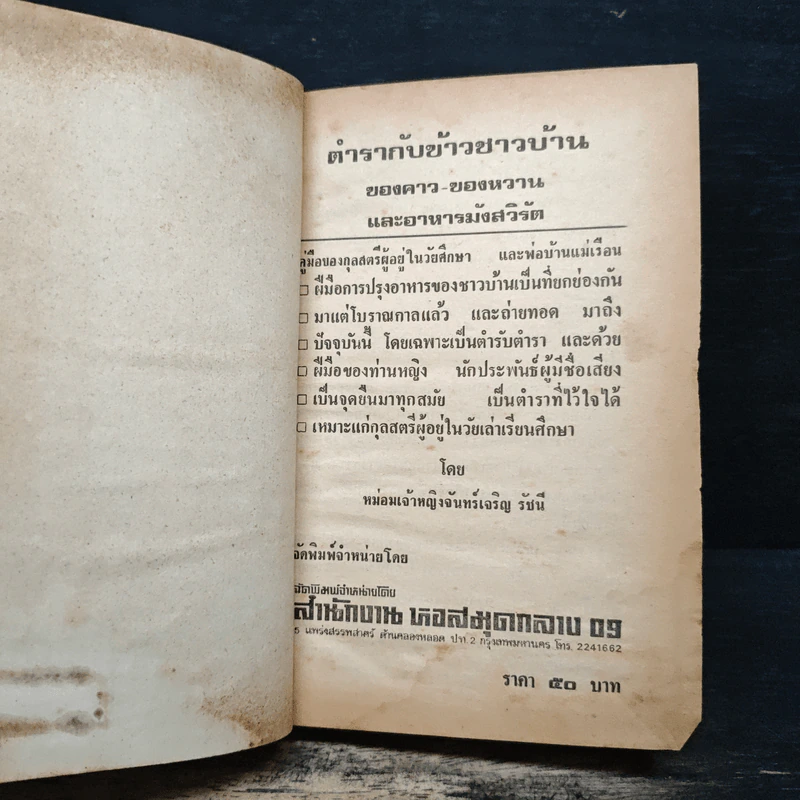 ตำรากับข้าวชาวบ้าน
ของคาว-ของหวาน
และอาหารมังสวิรัต
คู่มือของกุลสตรีผู้อยู่ในวัยศึกษา และพ่อบ้านแม่เรือน
□ ฝีมือการปรุงอาหารของชาวบ้านเป็นที่ยกย่องกัน
□ มาแต่โบราณกาลแล้ว และถ่ายทอด มาถึง
□ ปัจจุบันนี้ โดยเฉพาะเป็นตำรับตำรา และด้วย
□ ฝีมือของท่านหญิง นักประพันธ์ผู้มีชื่อเสียง
□ เป็นจุดยืนมาทุกสมัย เป็นตำราที่ไว้ใจได้
□ เหมาะแก่กุลสตรีผู้อยู่ในวัยเล่าเรียนศึกษา
โดย
หม่อมเจ้าหญิงจันทร์เจริญ รัชนี
จัดพิมพ์จำหน่ายโดย
จัดพิมพ์จำหน่ายโดย
สำนักงาน หอสมุดกลาง 09
5 แพร่งสรรพสาตร์ ด้านคลองหลอด ปท. 2 กรุงเทพมหานคร โทร. 2241662
ราคา ๕๐ บาท